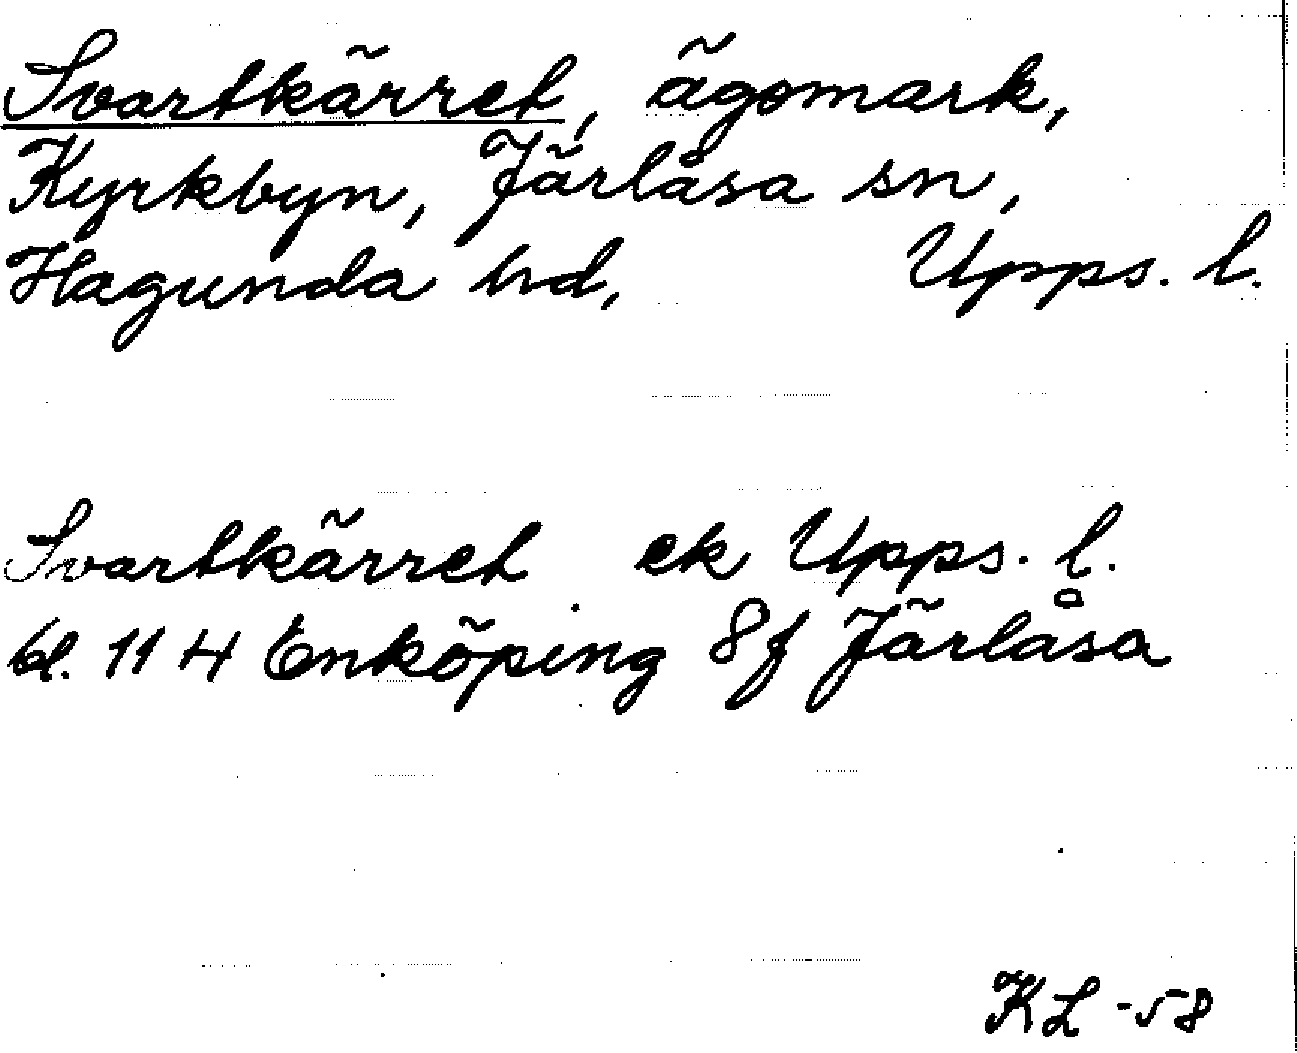 Svartkärret, ägomark,
Kyrkbyn, Järlåsa sn,
Hagunda hd, Upps. l.
Svartkärret ek Upps. l.
bl. 11 H Enköping 8f Järlåsa
KL -58